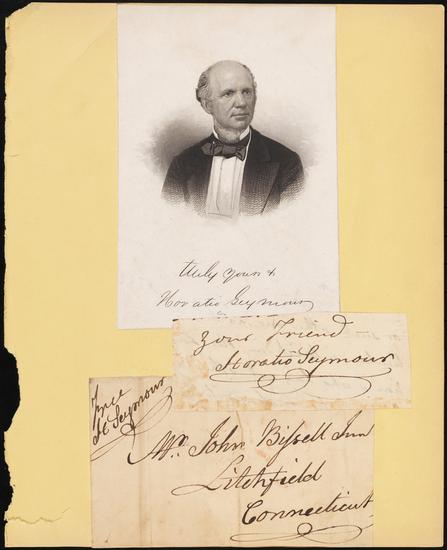 truly yours &
Horatio Seymour
Your Friend
Horatio Seymour
Free
H Seymour
Mr. John Bissell Jun
Litchfield
Connecticut